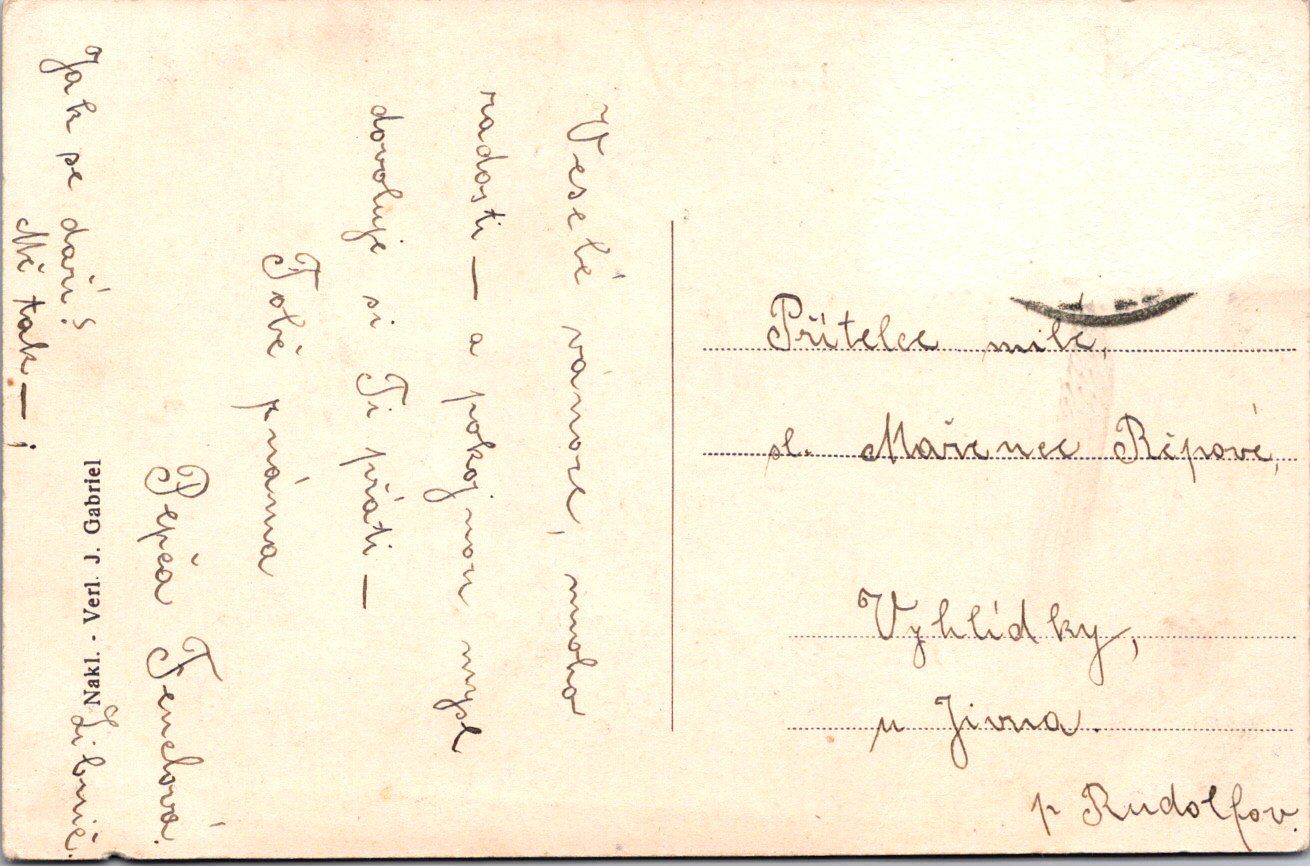 Veselé vánoce, mnoho
radosti — a pokojnou mysl
dovoluji si Ti přáti —
Tobě známa
Pepča Fenclová.
Libnič.
Jak se daří?
Mě tak — ;
Nakl. - Verl. J. Gabriel
Přítelce milé,
sl. Mařence Řípové,
Vyhlídky,
u Jivna.
p Rudolfov.